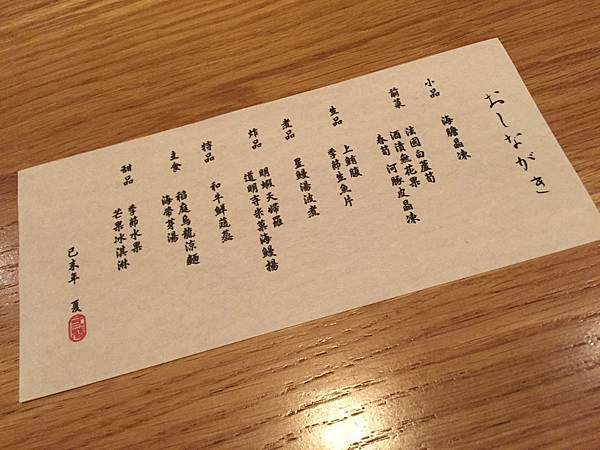 おしながき
小品
海膽晶凍
前菜
法國白蘆筍
酒漬無花果
春筍 河豚皮晶凍
生品
上鮪腹
季節生魚片
煮品
星鰻湯波煮
炸品
明蝦天婦羅
道明寺米菓海鰻揚
持品
和牛鮮蔬蒸
主食
稻庭烏龍涼麵
海帶芽湯
甜品
季節水果
芒果冰淇淋
己未年 夏